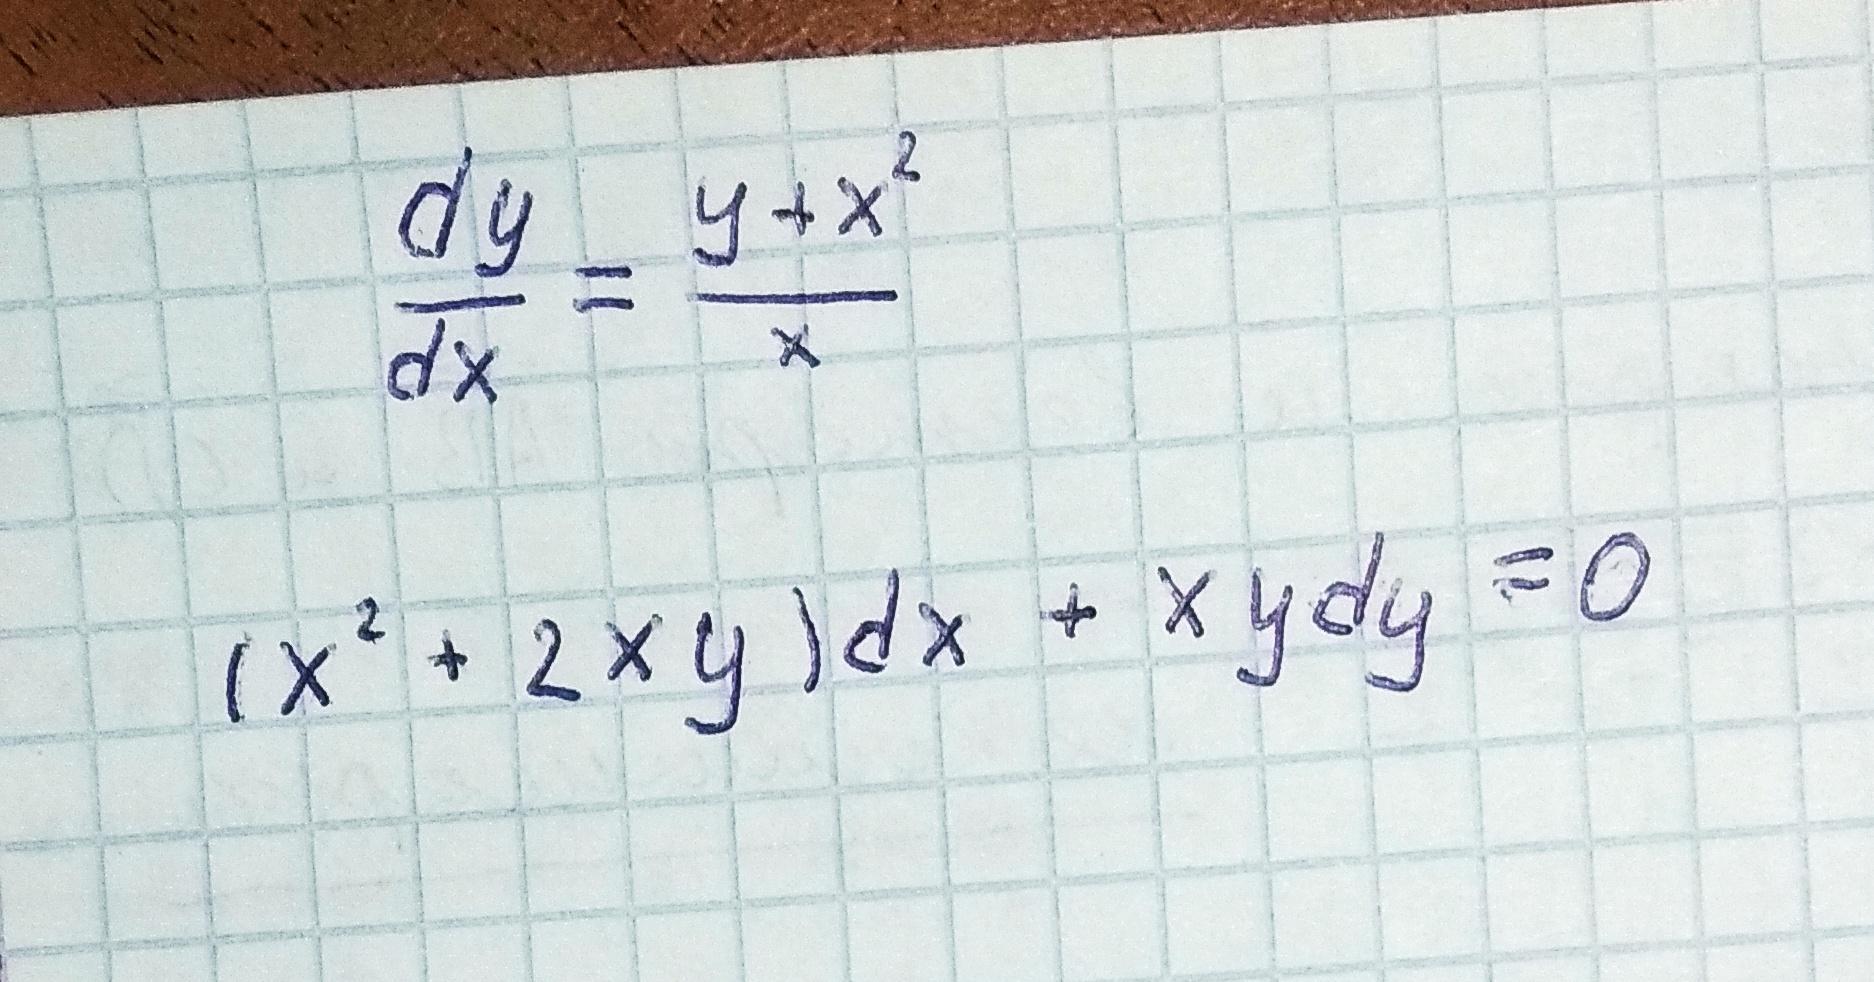 dy/dx = (y + x²)/x
(x² + 2xy)dx + xydy = 0